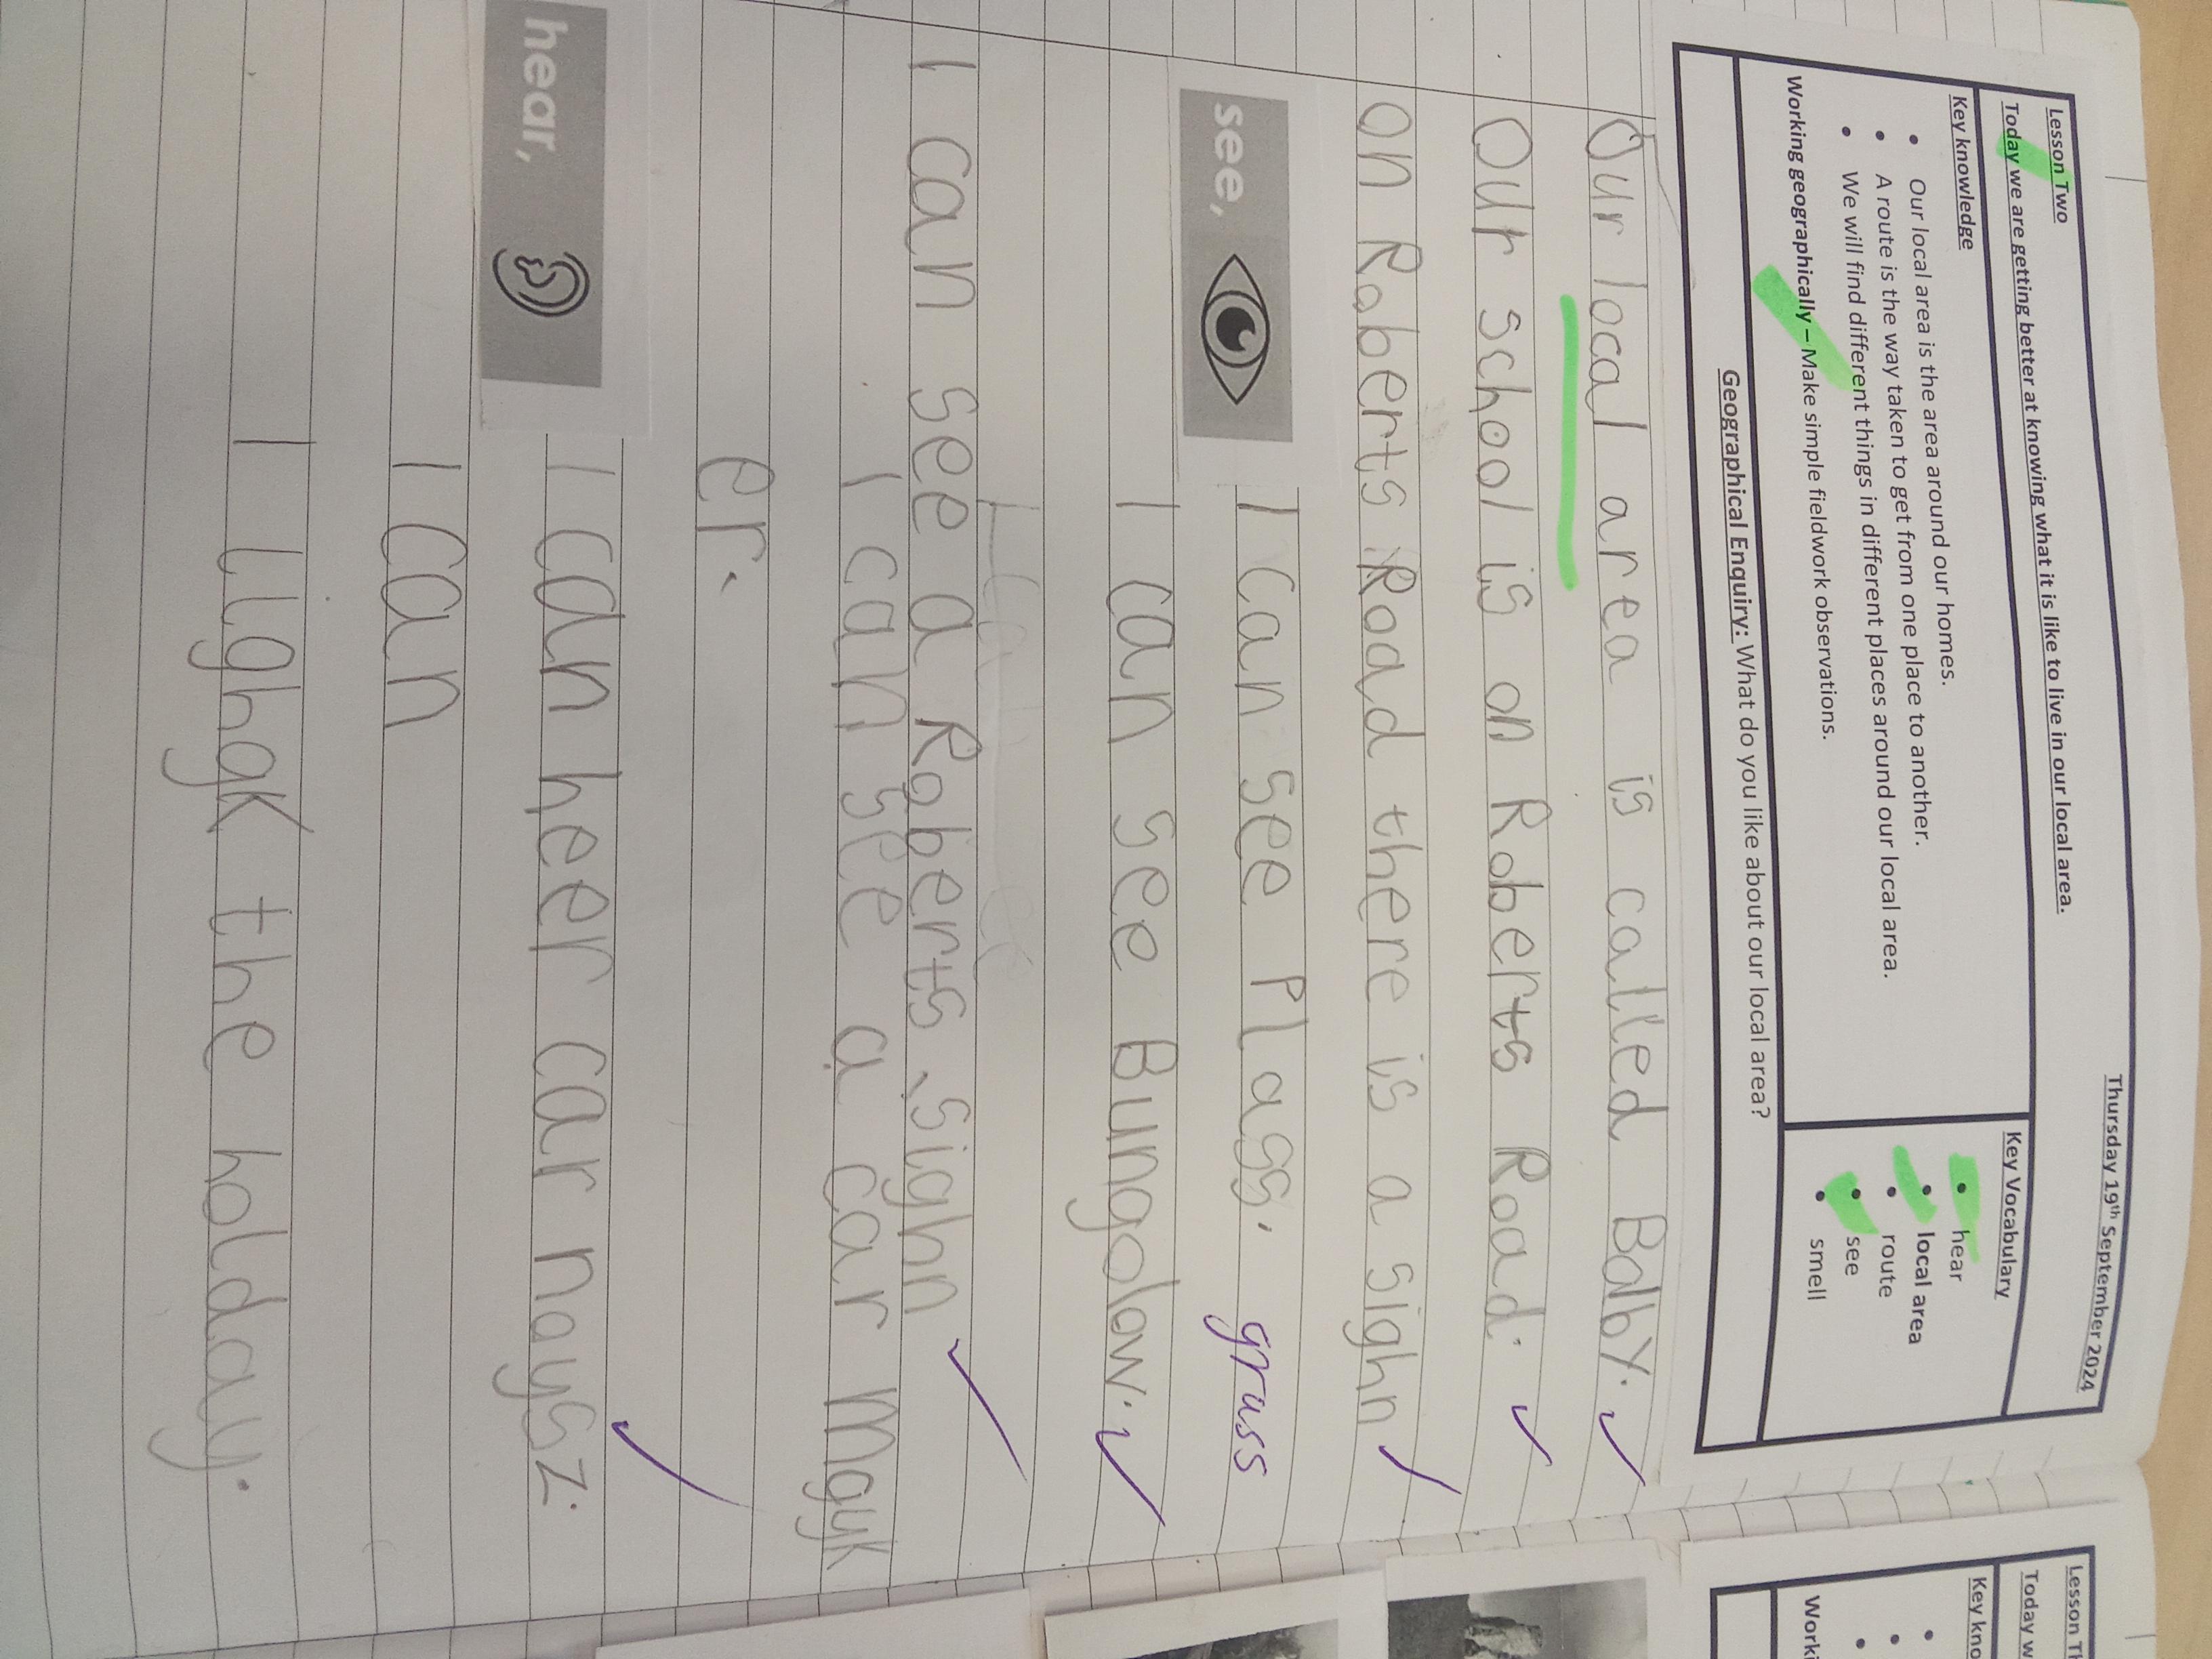 Thursday 19th September 2024
Lesson Two
Today we are getting better at knowing what it is like to live in our local area.
Key knowledge
• Our local area is the area around our homes.
• A route is the way taken to get from one place to another.
• We will find different things in different places around our local area.
Working geographically – Make simple fieldwork observations.
Key Vocabulary
• hear
• local area
• route
• see
• smell
Geographical Enquiry: What do you like about our local area?
Our local area is called Balby.
Our school is on Roberts Road.
on Roberts Road there is a sighn
see,
I can see Plass. grass
I can see Bungolow.
I can see a Roberts sighn
I can see a car mayk
er.
hear,
I can heer car naysz.
I can
I lighgk the holday.
Lesson Th
Today w
Key kno
Worki